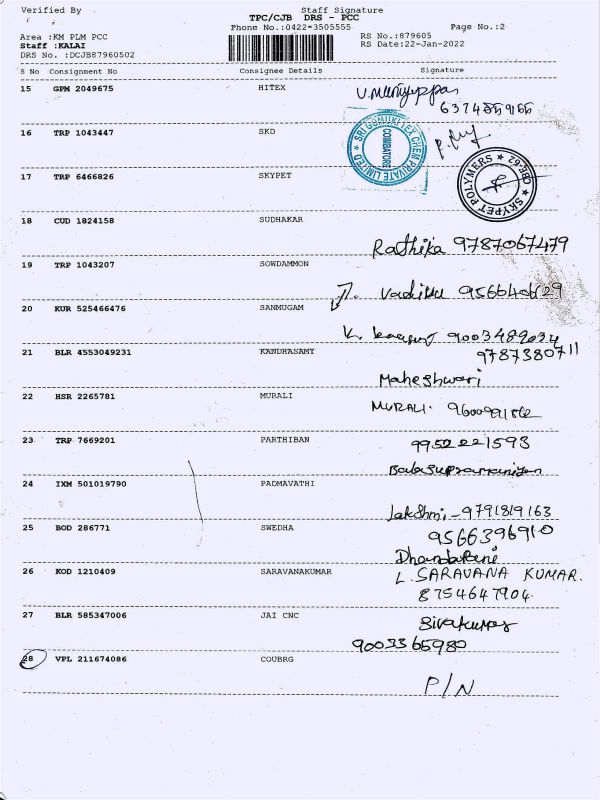 Verified By Staff Signature
TPC/CJB DRS - PCC
Phone No.:0422-3505555 Page No.:2
Area :KM PLM PCC RS No.:879605
Staff :KALAI RS Date:22-Jan-2022
DRS No. :DCJB87960502
S No Consignment No Consignee Details Signature
15 GPM 2049675 HITEX
16 TRP 1043447 SKD
SRI GOMUKI TEX CHEM PRIVATE LIMITED ★ COIMBATORE
17 TRP 6466826 SKYPET
★ SKYPET POLYMERS ★ CBE-62
18 CUD 1824158 SUDHAKAR
Rathika 9787067479
19 TRP 1043207 SOWDAMMON
20 KUR 525466476 SANMUGAM
K. 9003489034
21 BLR 4553049231 KANDHASAMY 9787380711
Maheshwari
22 HSR 2265781 MURALI
MURALI.
23 TRP 7669201 PARTHIBAN 9952221593
Balasupramaniyan
24 IXM 501019790 PADMAVATHI
Lakshmi - 9791819163
25 BOD 286771 SWEDHA 9566396910
Dhandapani
26 KOD 1210409 SARAVANAKUMAR L. SARAVANA KUMAR.
8754647904
27 BLR 585347006 JAI CNC Sivakumar
9003365980
28 VPL 211674086 COUBRG
P/N